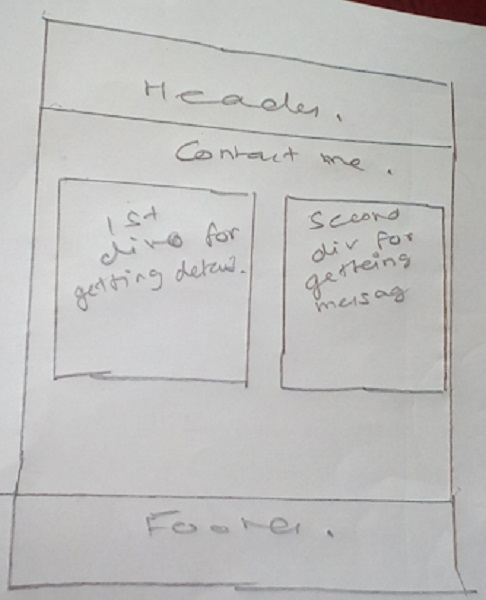 Header.
Contact me.
1st
div for
getting detail.
Second
div for
getteing
messag
Footer.